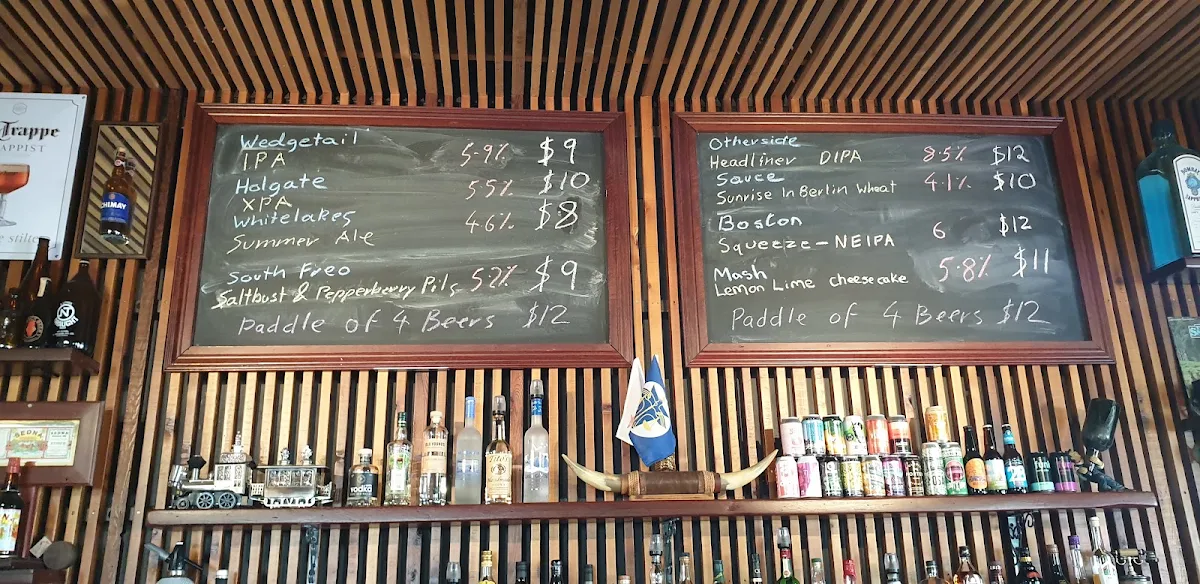 Trappe
TRAPPIST
CHIMAY
Wedgetail
IPA 5.9% $9
Holgate 5.5% $10
XPA
Whitelakes 4.6% $8
Summer Ale
South Freo
Saltbust & Pepperberry Pils 5.2% $9
Paddle of 4 Beers $12
Otherside
Headliner DIPA 8.5% $12
Sauce
Sunrise In Berlin Wheat 4.1% $10
Boston
Squeeze - NEIPA 6 $12
Mash
Lemon Lime cheesecake 5.8% $11
Paddle of 4 Beers $12
vodka